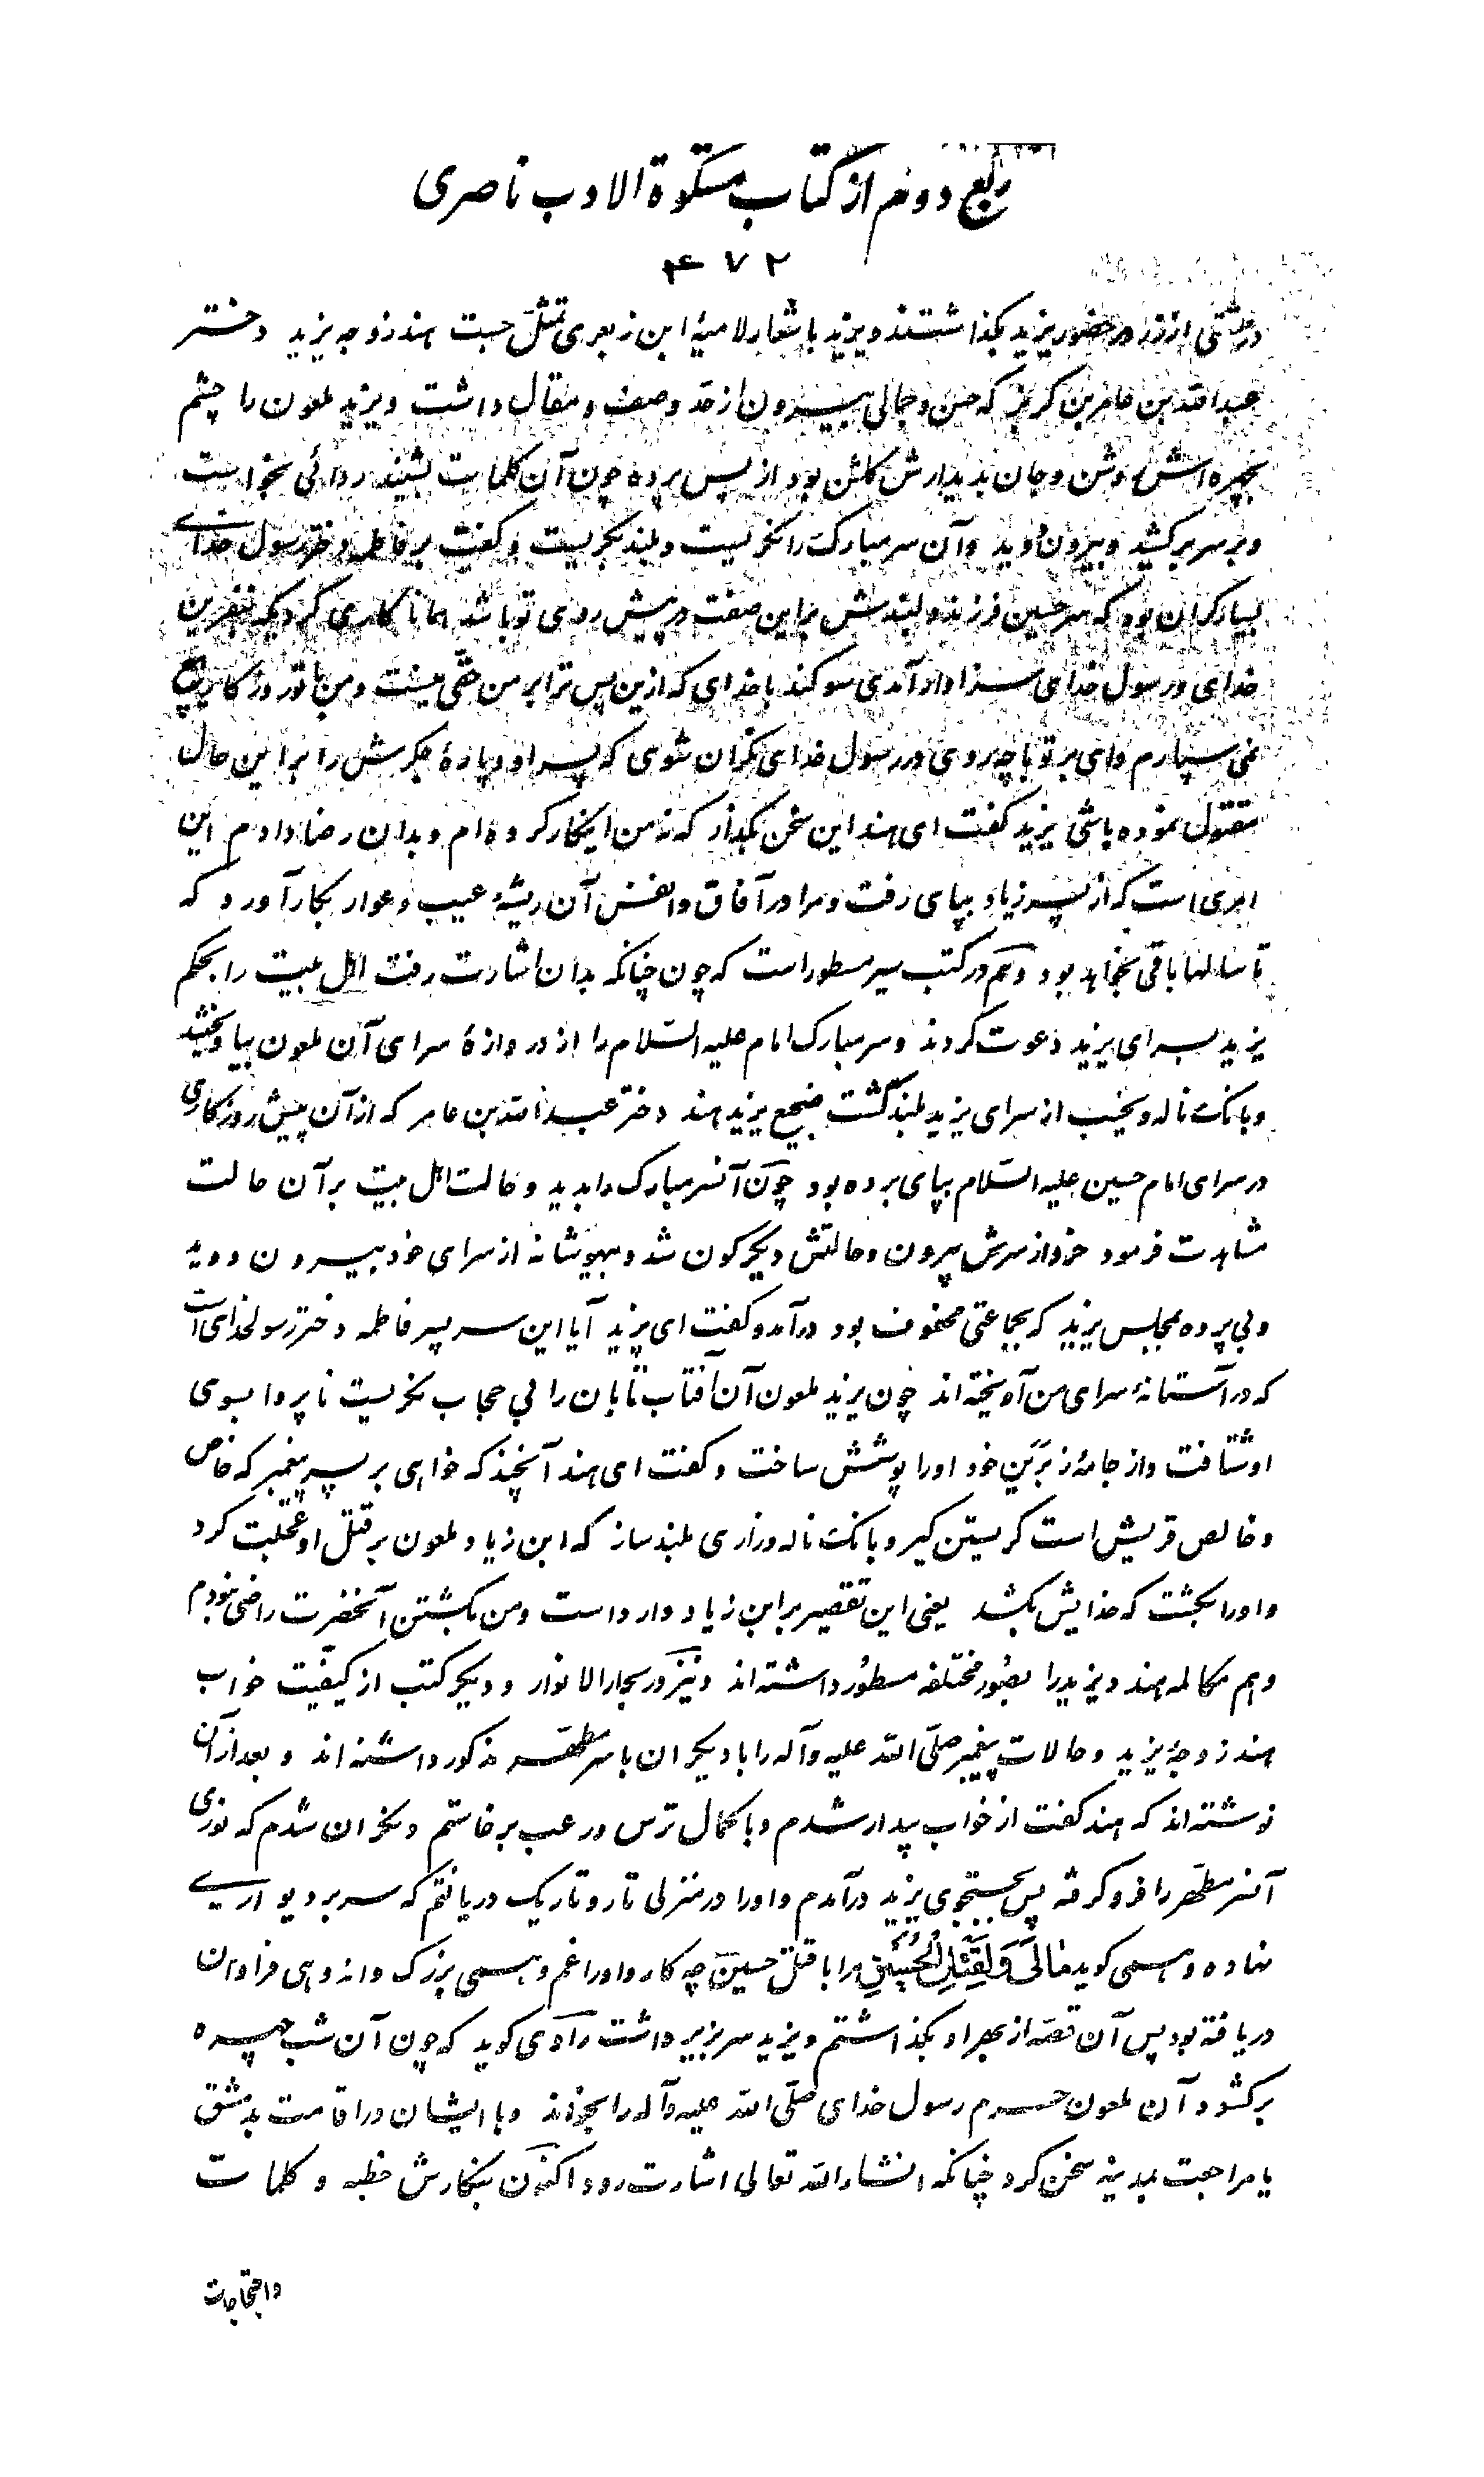 ربع دوم از کتاب مشکوة الادب ناصری
۴۷۲
در طشتی از زر در حضور یزید بگذاشتند و یزید باشعار لامیهٔ ابن زبعری تمثل جست هند زوجه یزید دختر
عبدالله بن عامر بن کریز که حسن و جمالی بیرون از حد وصف و مقال داشت و یزید ملعون را چشم
بچهره‌اش روشن و جان بدیدارش گلشن بود از پس پرده چون آن کلمات بشنید ردائی بخواست
و بر سر برکشید و بیرون دوید و آن سر مبارک را نگریست و بلند بگریست و گفت بر فاطمه دختر رسول خدای
بسیار گران بود که سر حسین فرزند دلبندش براین صفت در پیش روی تو باشد همانا کاری کردیکه بنفرین
خدای و رسول خدای سزاوار آمدی سوگند باخدای که ازین پس ترا بر من حقی نیست و من با تو روزگار هیچ
نمی سپارم وای بر تو با چه روی در رسول خدای نگران شوی که پسر او و پارهٔ جگرش را براین حال
مقتول نموده باشی یزید گفت ای هند این سخن بگذار که نه من اینکار کرده ام و بدان رضا دادم این
امری است که از پسر زیاد بپای رفت و مرا در آفاق و انفس آن ریشهٔ عیب و عوار بکار آورد که
تا سالها باقی بخواهد بود و هم در کتب سیر مسطور است که چون چنانکه بدان اشارت رفت اهل بیت را بحکم
یزید بسرای یزید دعوت کردند و سر مبارک امام علیه السّلام را از دروازهٔ سرای آن ملعون بیاویختند
و بانک ناله و نحیب از سرای یزید بلند گشت ضجیع یزید هند دختر عبدالله بن عامر که از آن پیش روزگاری
در سرای امام حسین علیه السّلام بپای برده بود چون آنسر مبارک را بدید و حالت اهل بیت بر آن حالت
مشاهدت فرمود خرد از سرش بیرون و حالتش دیگرگون شد و بیهوشانه از سرای خود بیرون دوید
و بی پرده بمجلس یزید که بجماعتی محفوف بود درآمد و گفت ای یزید آیا این سر پسر فاطمه دختر رسولخدای است
که در آستانهٔ سرای من آویخته اند چون یزید ملعون آن آفتاب تابان را بی حجاب نگریست ناپروا بسوی
او شتافت و از جامهٔ زبرین خود او را پوشش ساخت و گفت ای هند آنچند که خواهی بر پسر پیغمبر که خاص
و خالص قریش است گریستن گیر و بانک ناله و زاری بلند ساز که ابن زیاد ملعون بر قتل او عجلت کرد
و او را بکشت که خدایش بکشد یعنی این تقصیر بر ابن زیاد وارد است و من بکشتن آنحضرت راضی نبودم
و هم مکالمه هند و یزید را بصور مختلفه مسطور داشته اند و نیز در بحارالانوار و دیگر کتب از کیفیت خواب
هند زوجهٔ یزید و حالات پیغمبر صلّی الله علیه و آله را با دیگران با سر مطهر مذکور داشته اند و بعد از آن
نوشته اند که هند گفت از خواب بیدار شدم و با کمال ترس و رعب برخاستم و نگران شدم که نوری
آنسر مطهر را فرو گرفته پس بجستجوی یزید درآمدم و او را در منزلی تار و تاریک دریافتم که سر بر دیواری
نهاده و همی گوید مَالِی وَ لِقَتْلِ الْحُسَیْنِ مرا با قتل حسین چه کار و او را غم و همی بزرگ و اندوهی فراوان
دریافته بود پس آن قصه از بهر او بگذاشتم و یزید سر بزیر داشت راوی گوید که چون آن شب چهره
برگشود آن ملعون حرم رسول خدای صلّی الله علیه و آله را بخواند و با ایشان در اقامت بدمشق
یا مراجعت بمدینه سخن کرد چنانکه انشاءالله تعالی اشارت رود اکنون بنگارش خطبه و کلمات
و احتجاجات